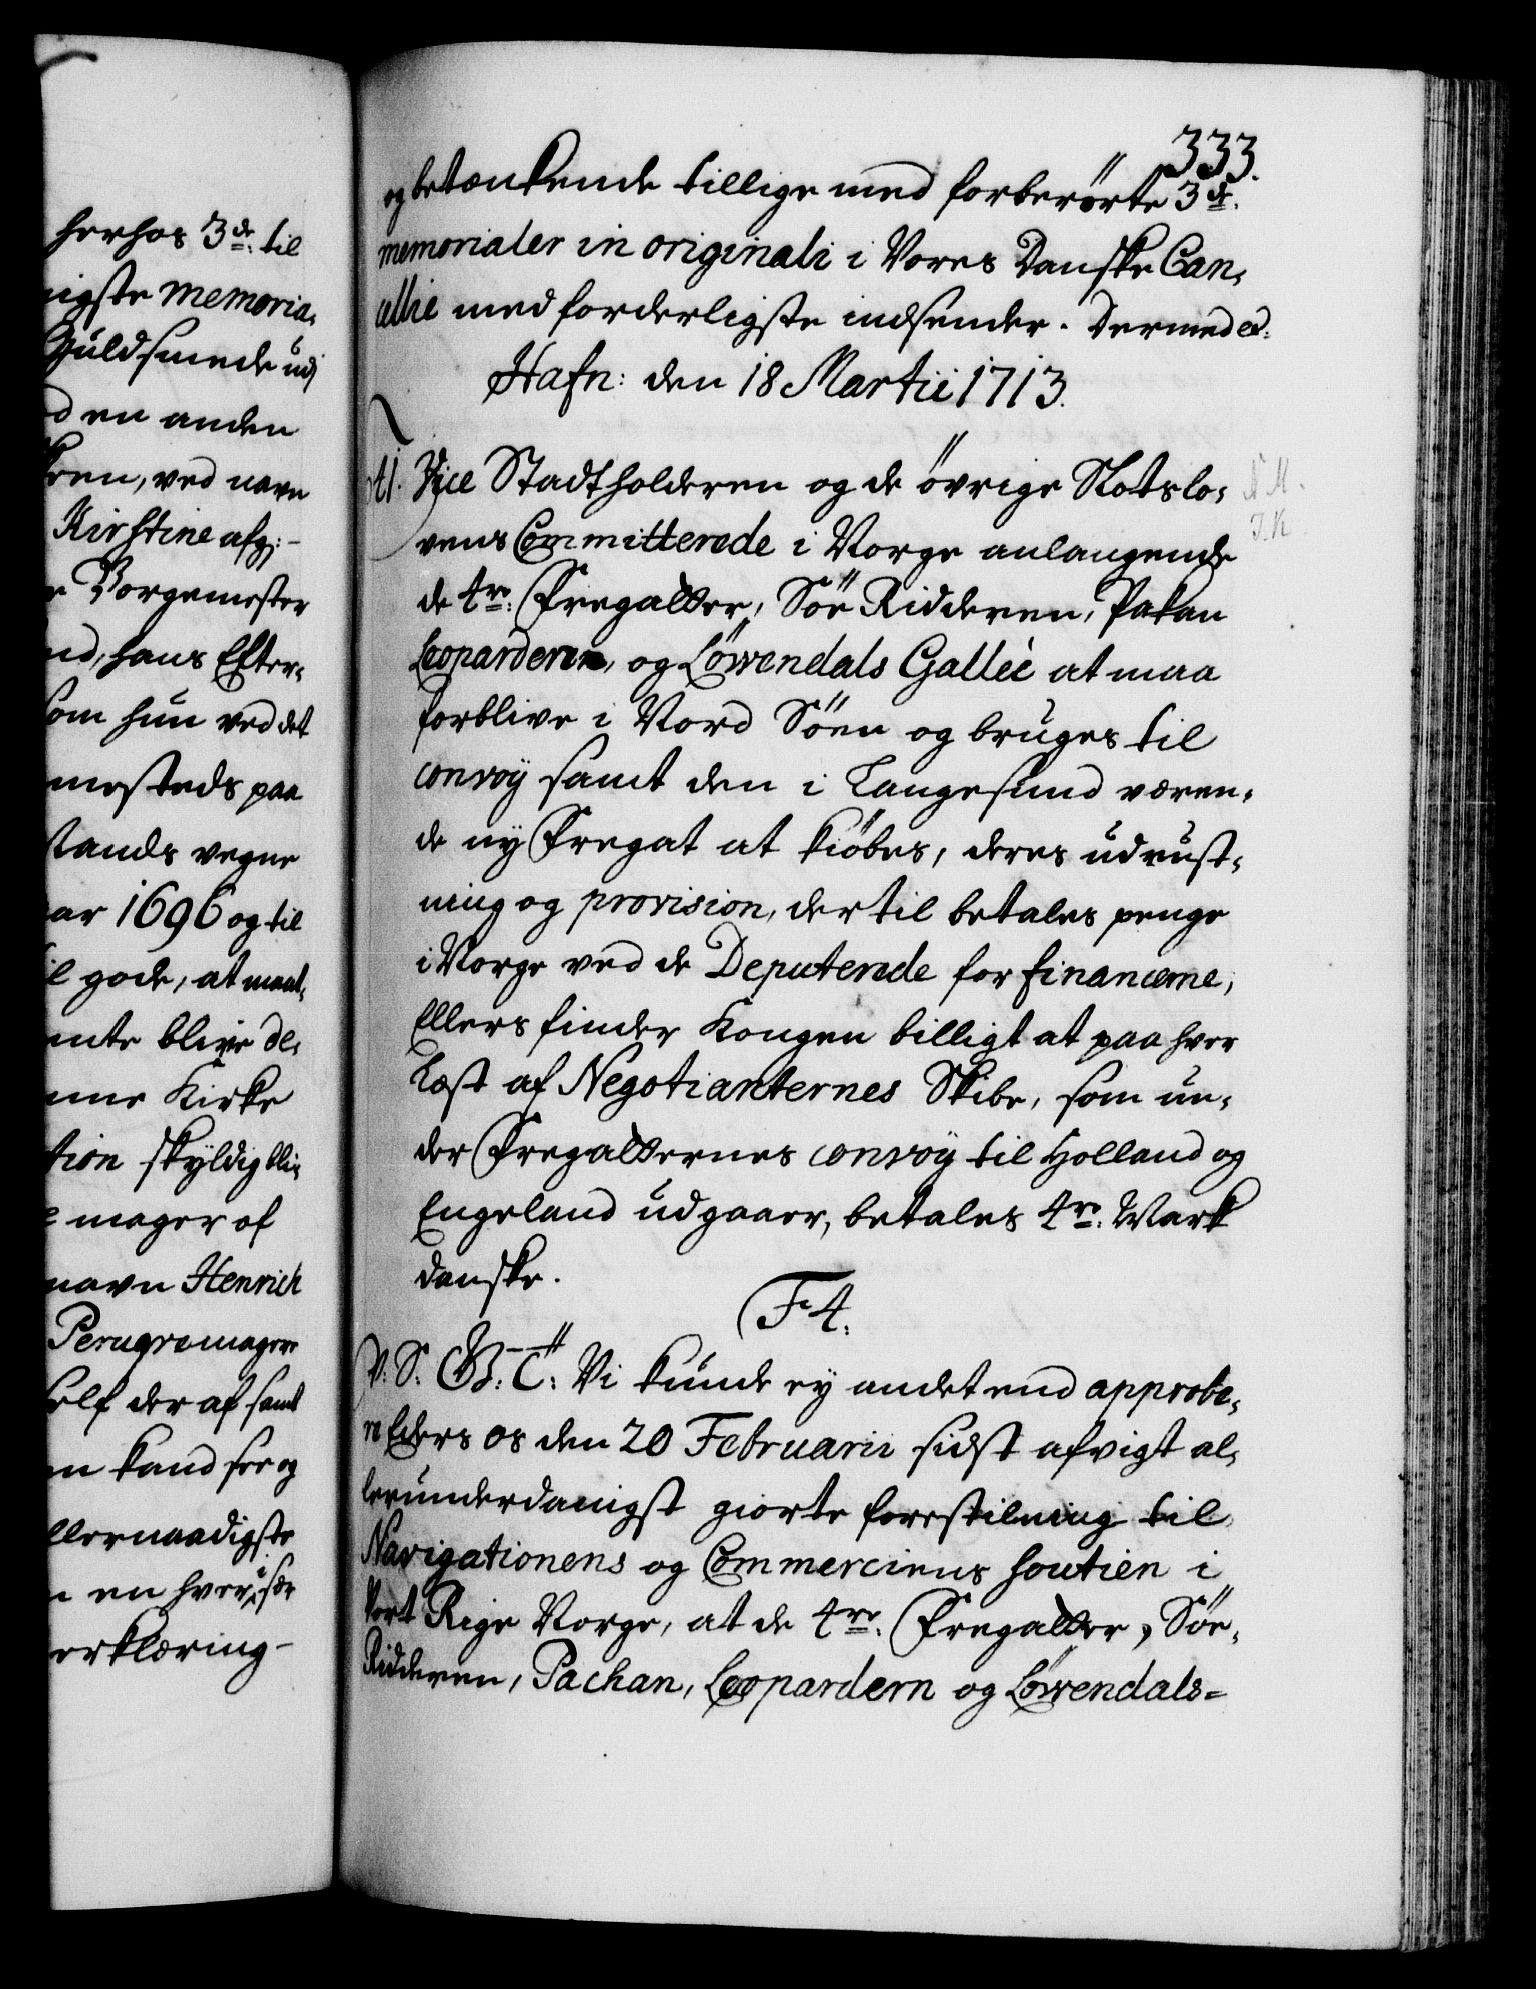 herhos 3de. til
nigste memoria-
Guldsmede udj
d en anden
ren, ved navn
Kirstine afg: -
r Borgemester
nd, hans Efter-
som hun ved det
mesteds paa
stands vegne
aar 1696 og til
il gode, at maat-
mte blive de-
nne Kirke
tion skyldig bli-
e mager af
navn Henrich
Peruqvemagere
self der af samt
n kand see og
llernaadigste
n en hver især
erklæring -
333.
og betænkende tillige med forberørte 3de.
memorialer in originali i Vores Danske Can-
cellie med forderligste indsender. Dermed ec.
Hafn: den 18 Martii 1713.
Til Vice Stadtholderen og de övrige Slotslo-
vens Committerede i Norge anlangende
de 4re. Fregatter, Söe Ridderen, Pakan
Leoparderen, og Löwendals Gallei at maa
forblive i Nord Söen og bruges til
convoy samt den i Langesund væren-
de ny Fregat at kiöbes, deres udrust-
ning og provision, der til betales penge
i Norge ved de Deputerede for financerne,
Ellers finder Kongen billigt at paa hver
Læst af Negotianternes Skibe, som un-
der Fregatternes convoy til Holland og
Engeland udgaaer, betales 4re. Mark
danske.
F 4.
V. S. G. T: Vi kunde ey andet end approbe-
re Eders os den 20 Februarii sidst afvigt al-
lerunderdanigst giorte forestilning til
Navigationens og Commerciens soutien i
Vort Rige Norge, at de 4re. Fregatter, Söe-
Ridderen, Pachan, Leopardern og Löwendals-